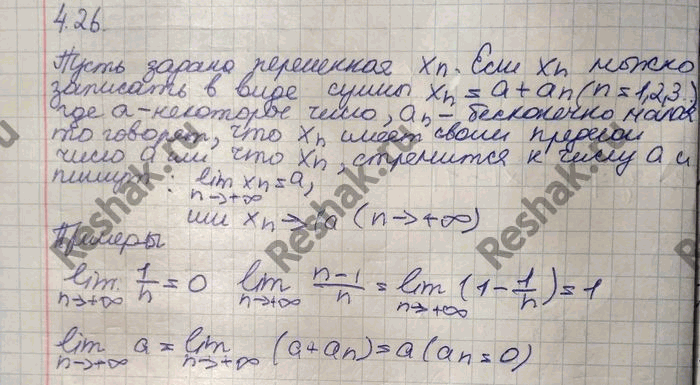 4.26.
Пусть зарана переменная xn. Если xn можно
записать в виде суммы xn = a + an (n = 1,2,3.)
где a - некоторые число, an - бесконечно малая
то говорят, что xn имеет своим пределом
число a или что xn, стремится к числу a и
пишут: lim xn = a,
n->+∞
или xn -> a (n->+∞)
Примеры
lim 1/n = 0 lim (n-1)/n = lim (1 - 1/n) = 1
n->+∞ n->+∞ n->+∞
lim a = lim (a + an) = a (an = 0)
n->+∞ n->+∞
Reshak.ru
Reshak.ru
Reshak.ru